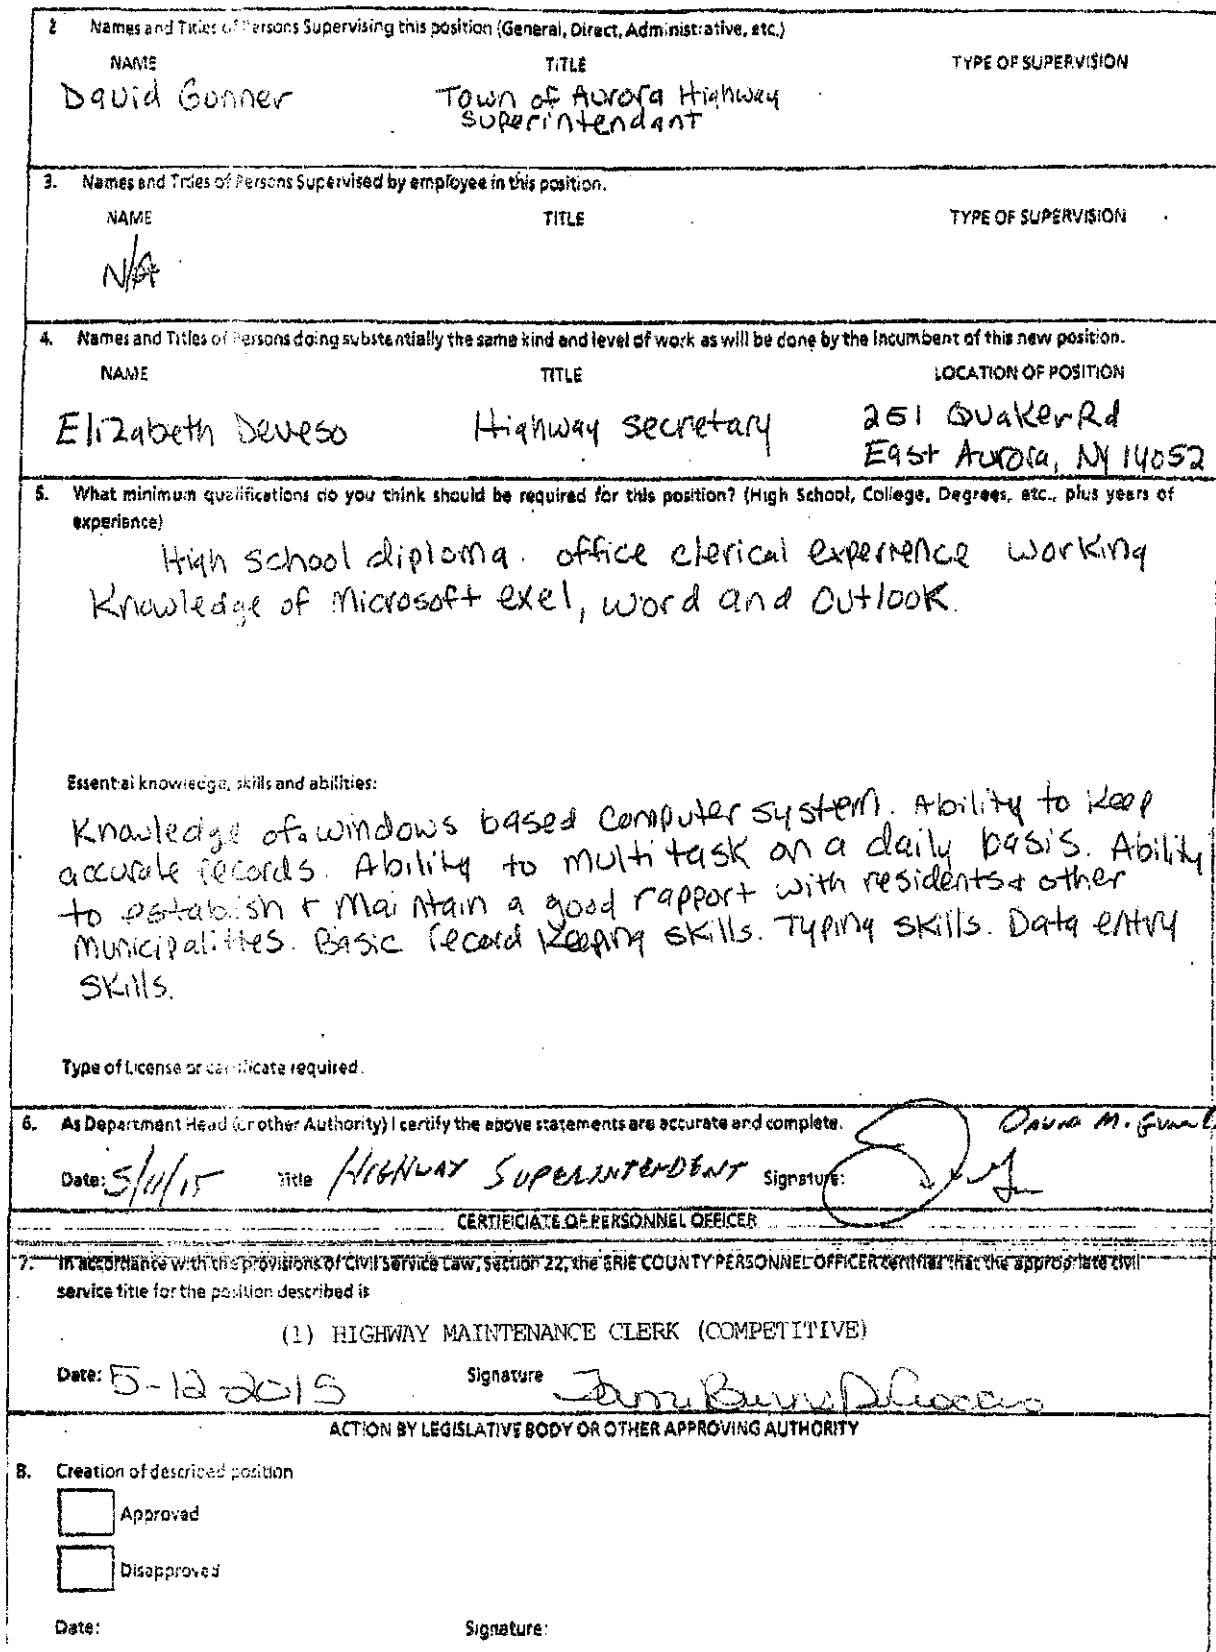 2 Names and Titles of Persons Supervising this position (General, Direct, Administrative, etc.)
NAME TITLE TYPE OF SUPERVISION
David Gunner Town of Aurora Highway
Superintendant
3. Names and Titles of Persons Supervised by employee in this position.
NAME TITLE TYPE OF SUPERVISION
N/A
4. Names and Titles of Persons doing substantially the same kind and level of work as will be done by the incumbent of this new position.
NAME TITLE LOCATION OF POSITION
Elizabeth Deveso Highway secretary 251 Quaker Rd
East Aurora, NY 14052
5. What minimum qualifications do you think should be required for this position? (High School, College, Degrees, etc., plus years of
experience)
High school diploma. office clerical experience working
Knowledge of Microsoft exel, word and Outlook.
Essential knowledge, skills and abilities:
Knowledge of a windows based computer system. Ability to Keep
accurate records. Ability to multi task on a daily basis. Ability
to estabish & Maintain a good rapport with residents & other
Municipalities. Basic record Keeping skills. Typing skills. Data entry
skills.
Type of License or certificate required.
6. As Department Head (or other Authority) I certify the above statements are accurate and complete. DAVID M.
Date: 5/11/15 Title HIGHWAY SUPERINTENDENT Signature:
CERTIFICIATE OF PERSONNEL OFFICER
7. In accordance with the provisions of Civil Service Law, Section 22, the ERIE COUNTY PERSONNEL OFFICER certifies that the appropriate civil
service title for the position described is
(1) HIGHWAY MAINTENANCE CLERK (COMPETITIVE)
Date: 5-12-2015 Signature
ACTION BY LEGISLATIVE BODY OR OTHER APPROVING AUTHORITY
8. Creation of described position
Approved
Disapproved
Date: Signature: